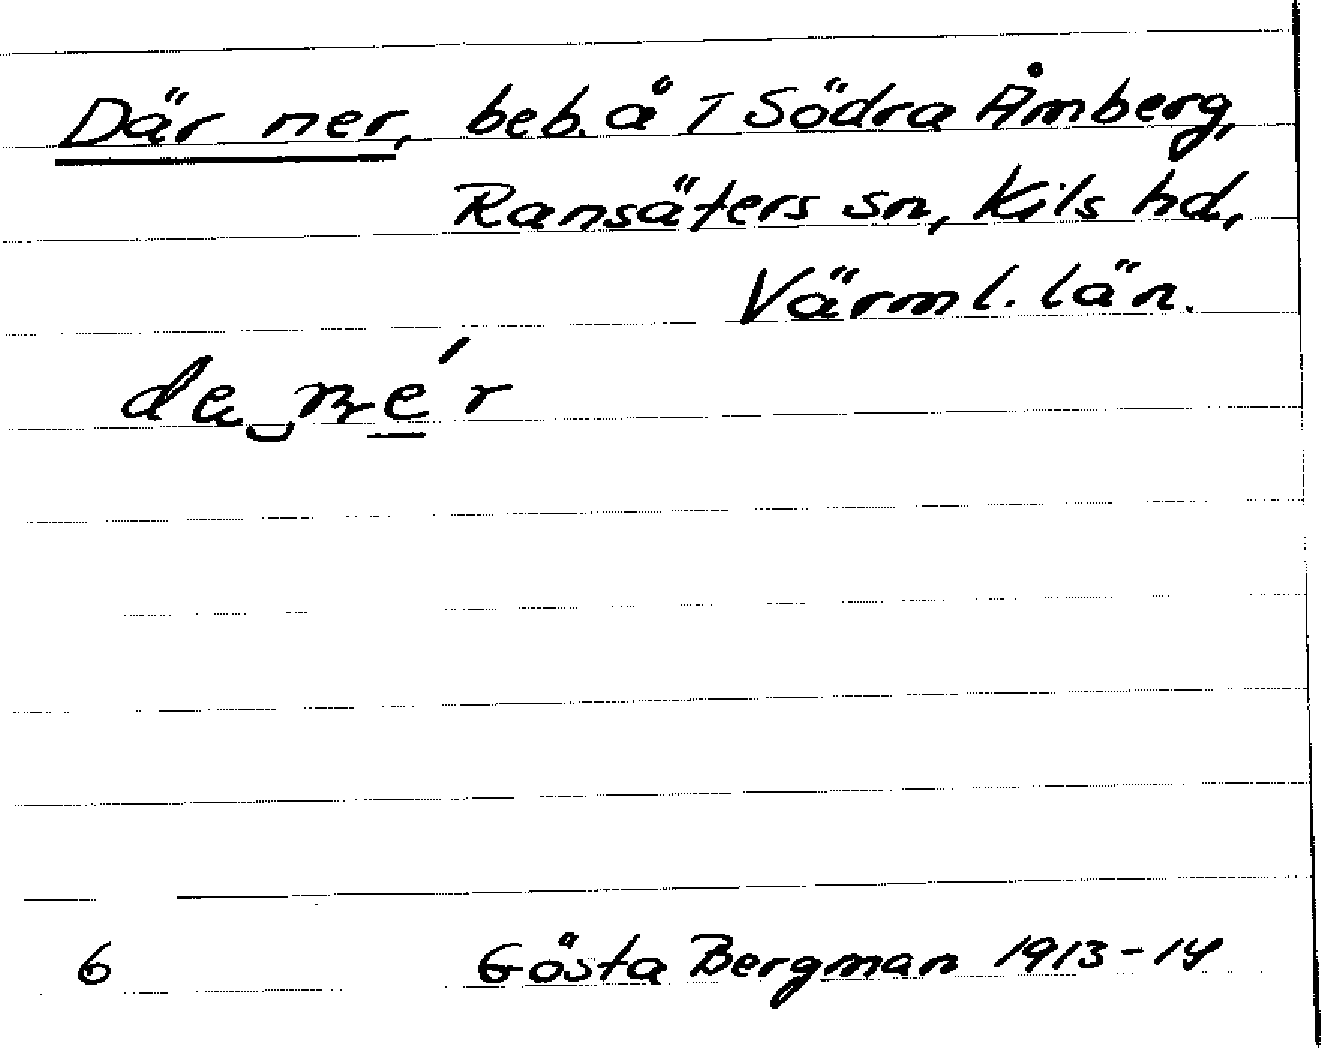 Där ner, beb. å T Södra Åmberg,
Ransäters sn, Kils hd,
Värml. län.
de‿né́r
6 Gösta Bergman 1913-14